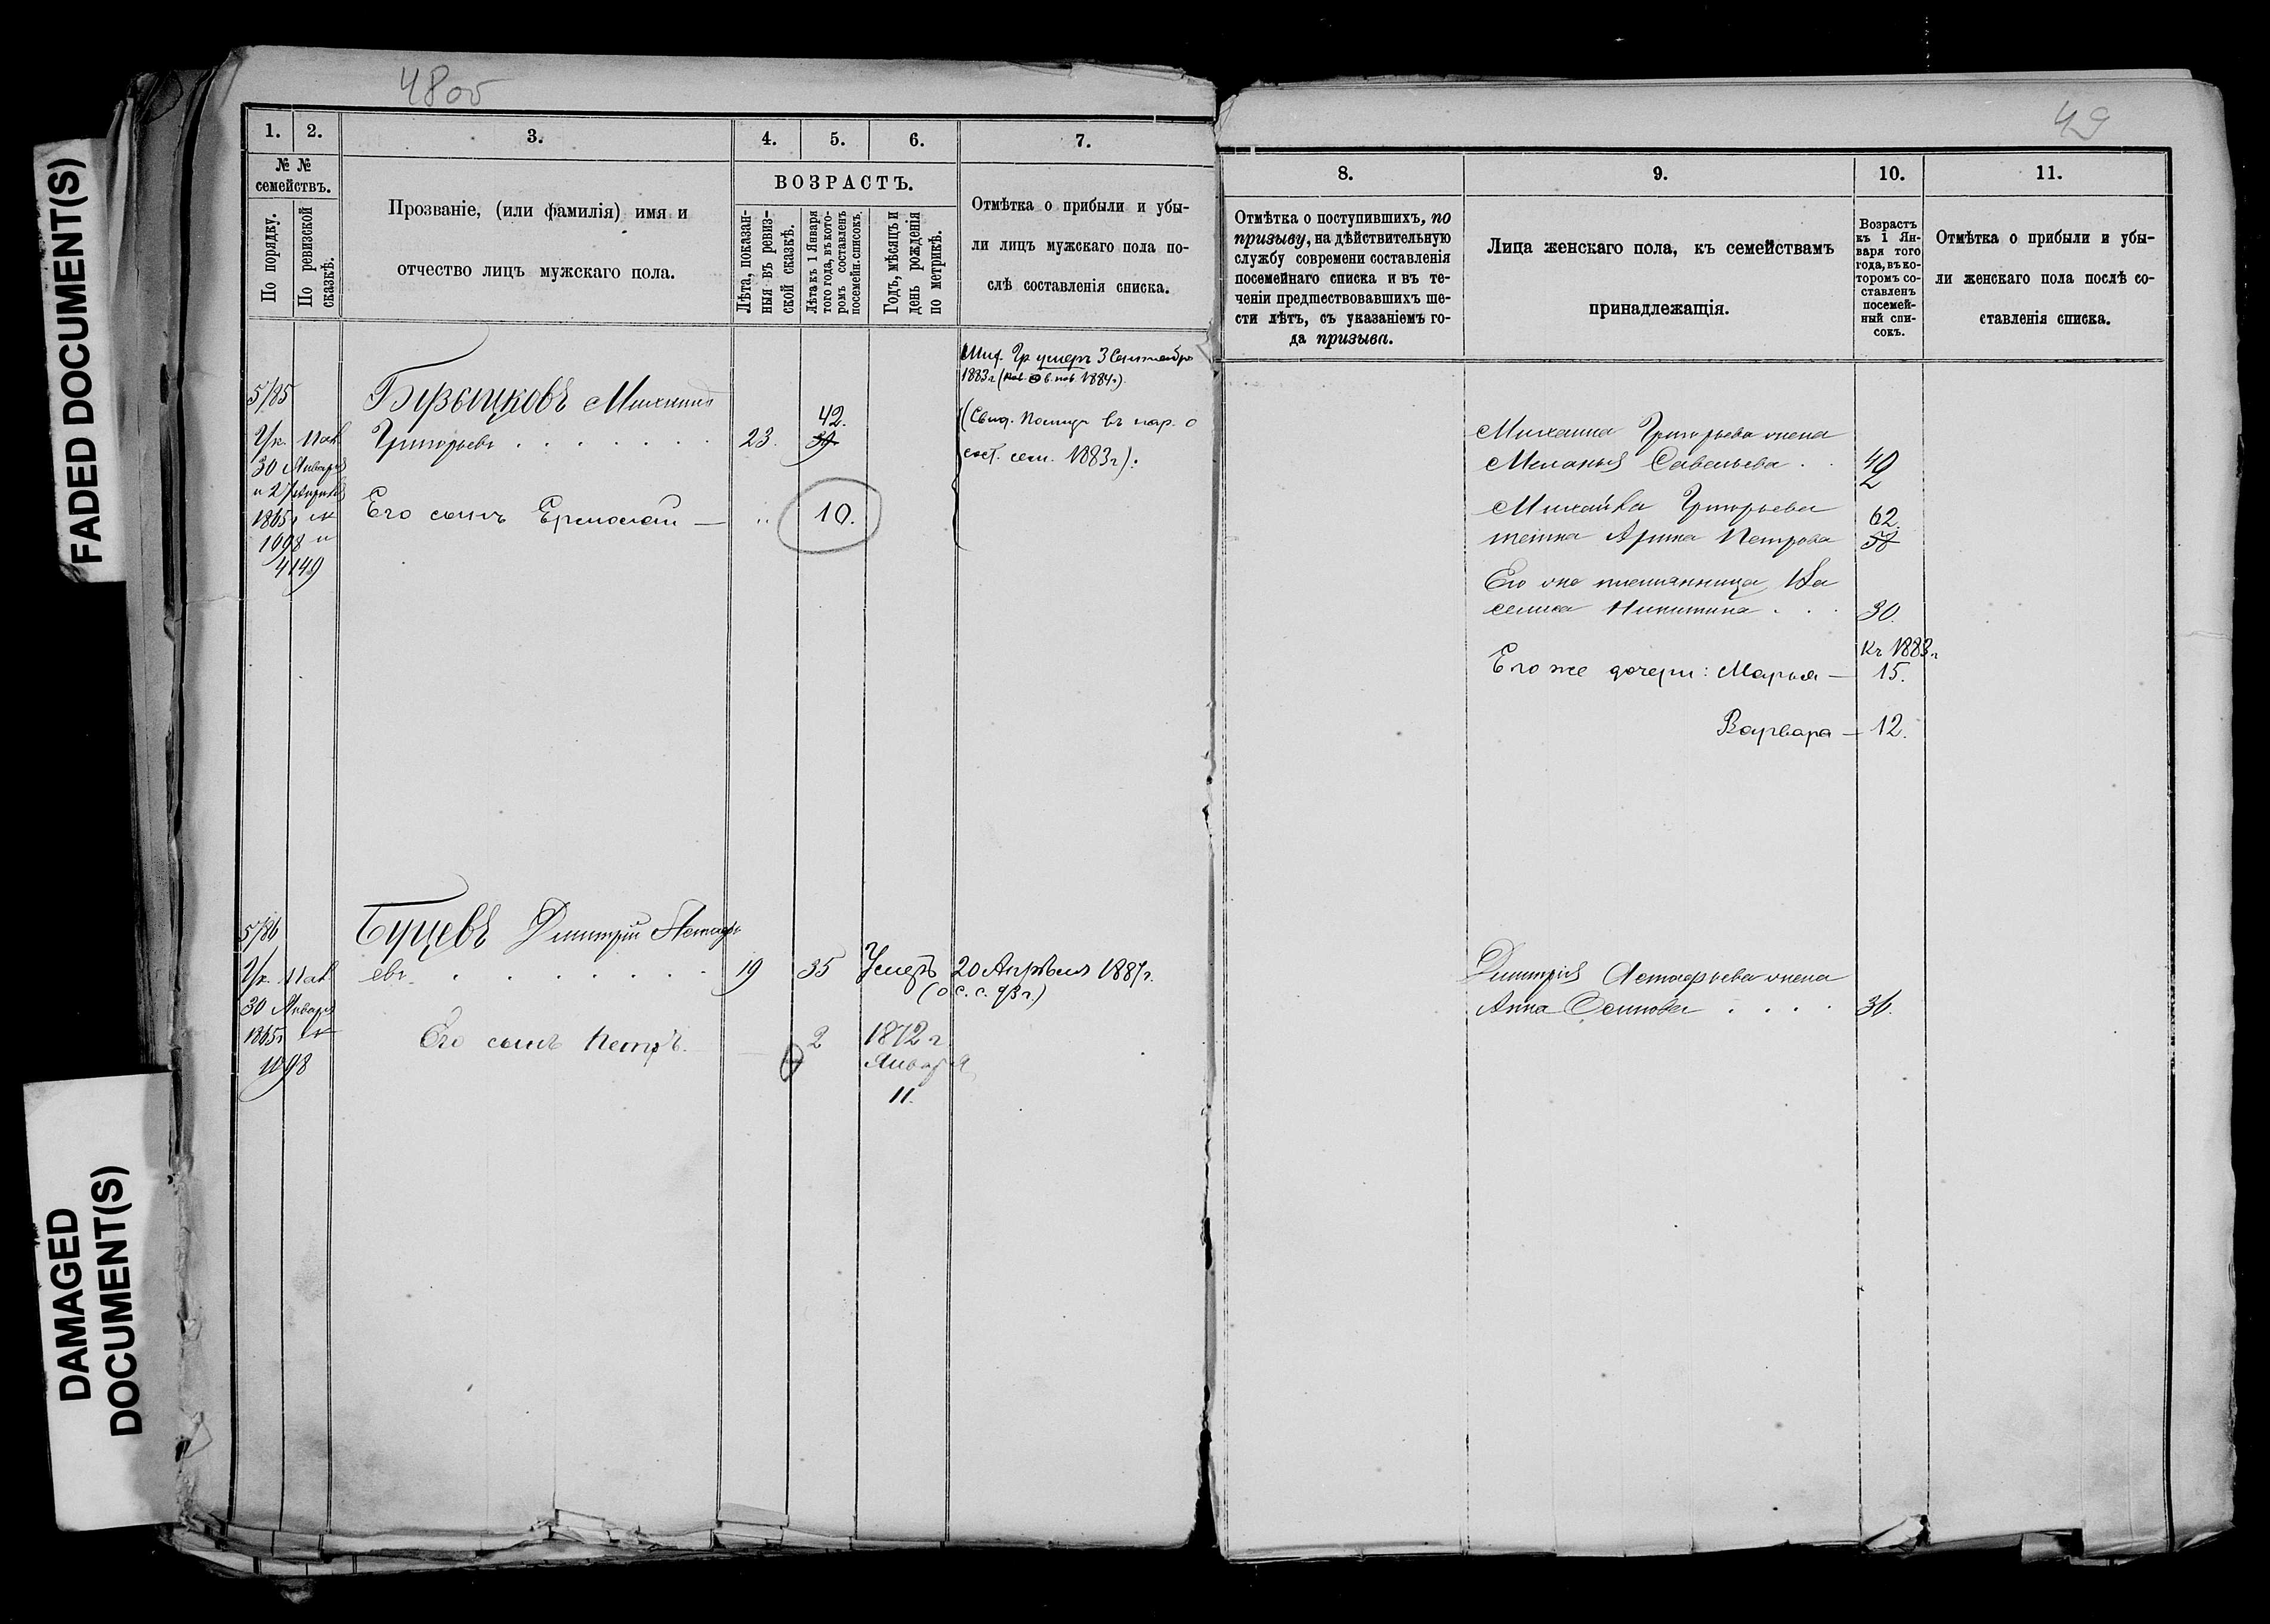 FADED DOCUMENT(S)
DAMAGED
DOCUMENT(S)
48 об
1. 2. 3. 4. 5. 6. 7.
№ №
семействъ.
По порядку.
По ревизской
сказкѣ.
Прозваніе, (или фамилія) имя и
отчество лицъ мужскаго пола.
ВОЗРАСТЪ.
Лѣта, показан-
ныя въ ревиз-
ской сказкѣ.
Лѣта къ 1 Января
того года, въ кото-
ромъ составленъ
посемейн. списокъ.
Годъ, мѣсяцъ и
день рожденія
по метрикѣ.
Отмѣтка о прибыли и убы-
ли лицъ мужскаго пола по-
слѣ составленія списка.
Мих. Гр. умеръ 3 Сентября
1883 г
5/85
Михаилъ
42.
Григорьевъ 23. 39
въ пар. о
сост. сем. 1883 г).
30 Января
и 27 Апрѣля
1865 г №
1998 и
4149
Его сынъ Ермолай — 10.
5/86
Дмитрій Астафь
евъ 19 35 Умеръ 20 Апрѣля 1887 г.
30 Января
1865 г №
1998
Его сынъ Петръ. 2 1872 г.
Января
11.
49
8. 9. 10. 11.
Отмѣтка о поступившихъ, по
призыву, на дѣйствительную
службу современи составленія
посемейнаго списка и въ те-
ченіи предшествовавшихъ ше-
сти лѣтъ, съ указаніемъ го-
да призыва.
Лица женскаго пола, къ семействамъ
принадлежащія.
Возрастъ
къ 1 Ян-
варя того
года, въ ко-
торомъ со-
ставленъ
посемей-
ный спи-
сокъ.
Отмѣтка о прибыли и убы-
ли женскаго пола послѣ со-
ставленія списка.
Михаила Григорьева жена
Меланья Савельева
Михайла Григорьева 62.
тетка Арина Петрова 58
Его же племянница Ва
селиса Никитина 30.
Къ 1883 г
Его же дочери: Марья — 15.
Варвара — 12.
Дмитрія Астафьева жена
Анна Осипова 36.